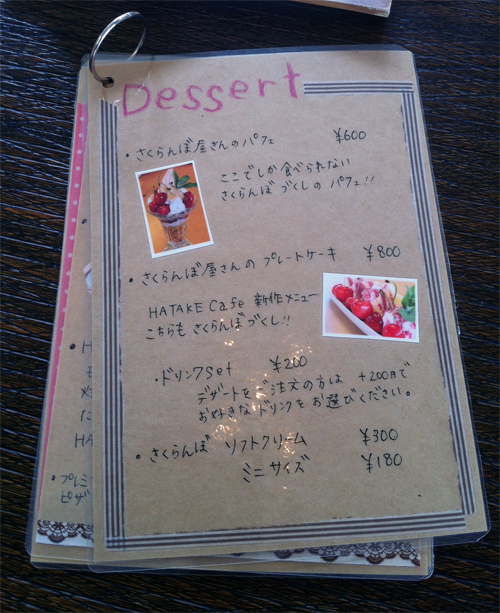 Dessert
・さくらんぼ屋さんのパフェ ¥600
ここでしか食べられない
さくらんぼづくしのパフェ!!
・さくらんぼ屋さんの プレートケーキ ¥800
HATAKE Cafe 新作メニュー
こちらも さくらんぼづくし!!
・ドリンクSet ¥200
デザートをご注文の方は +200円で
お好きなドリンクをお選びください。
・さくらんぼ ソフトクリーム ¥300
ミニサイズ ¥180
・H
に
HA
・プレミ
ピザ